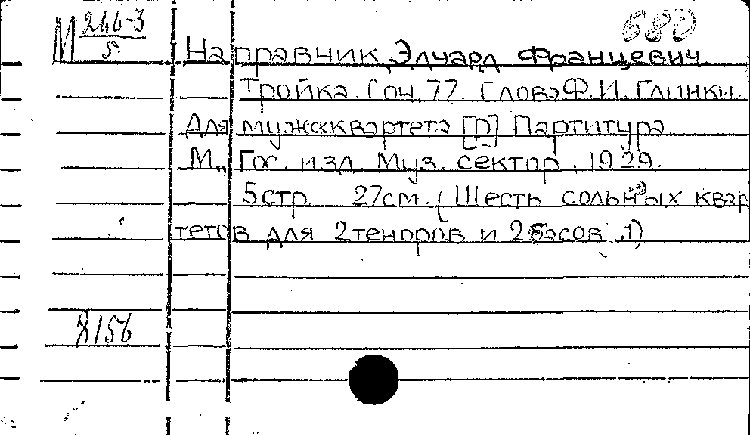 М 266-3/5
680
Направник, Эдуард Францевич.
Тройка. Соч. 77. Слова Ф.И. Глинки.
Для муж. квартета [р] Партитура
М., Гос. изд. Муз. сектор, 1929.
5 стр. 27 см. (Шесть сольных квар
тетов для 2 теноров и 2 басов, 1)
8156